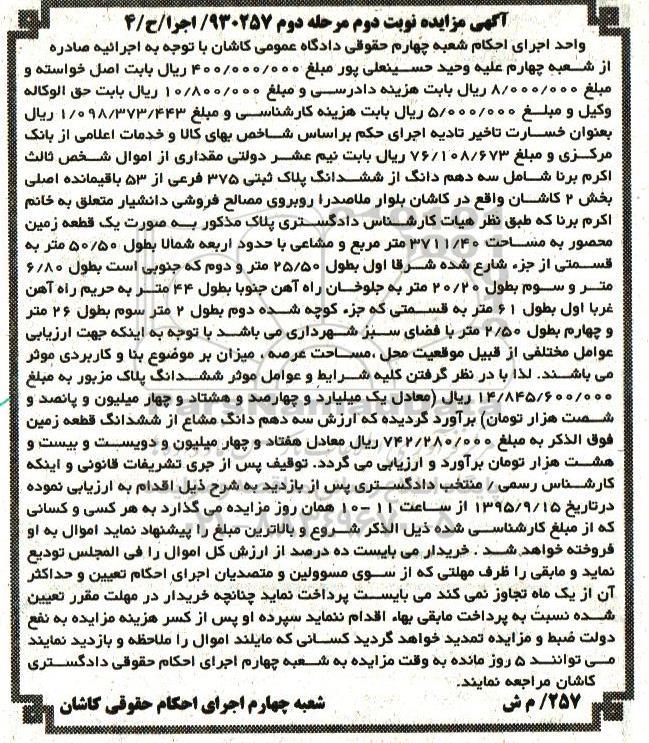 آگهی مزایده نوبت دوم مرحله دوم ۹۳۰۲۵۷/ اجرا/ح/۴
واحد اجرای احکام شعبه چهارم حقوقی دادگاه عمومی کاشان با توجه به اجرائیه صادره
از شعبه چهارم علیه وحید حسینعلی پور مبلغ ۴۰۰/۰۰۰/۰۰۰ ریال بابت اصل خواسته و
مبلغ ۸/۰۰۰/۰۰۰ ریال بابت هزینه دادرسی و مبلغ ۱۰/۸۰۰/۰۰۰ ریال بابت حق الوکاله
وکیل و مبلغ ۵/۰۰۰/۰۰۰ ریال بابت هزینه کارشناسی و مبلغ ۱/۰۹۸/۳۷۳/۴۴۳ ریال
بعنوان خسارت تاخیر تادیه اجرای حکم براساس شاخص بهای کالا و خدمات اعلامی از بانک
مرکزی و مبلغ ۷۶/۱۰۸/۶۷۳ ریال بابت نیم عشر دولتی مقداری از اموال شخص ثالث
اکرم برنا شامل سه دهم دانگ از ششدانگ پلاک ثبتی ۳۷۵ فرعی از ۵۳ باقیمانده اصلی
بخش ۲ کاشان واقع در کاشان بلوار ملاصدرا روبروی مصالح فروشی دانشیار متعلق به خانم
اکرم برنا که طبق نظر هیات کارشناس دادگستری پلاک مذکور به صورت یک قطعه زمین
محصور به مساحت ۳۷۱۱/۴۰ متر مربع و مشاعی با حدود اربعه شمالا بطول ۵۰/۵۰ متر به
قسمتی از جزء شارع شده شرقا اول بطول ۲۵/۵۰ متر و دوم که جنوبی است بطول ۶/۸۰
متر و سوم بطول ۲۰/۲۰ متر به جلوخان راه آهن جنوبا بطول ۴۴ متر به حریم راه آهن
غربا اول بطول ۶۱ متر به قسمتی که جزء کوچه شده دوم بطول ۲ متر سوم بطول ۲۶ متر
و چهارم بطول ۲/۵۰ متر با فضای سبز شهرداری می باشد با توجه به اینکه جهت ارزیابی
عوامل مختلفی از قبیل موقعیت محل ،مساحت عرصه ، میزان بر موضوع بنا و کاربردی موثر
می باشند. لذا با در نظر گرفتن کلیه شرایط و عوامل موثر ششدانگ پلاک مزبور به مبلغ
۱۴/۸۴۵/۶۰۰/۰۰۰ ریال (معادل یک میلیارد و چهارصد و هشتاد و چهار میلیون و پانصد و
شصت هزار تومان) برآورد گردیده که ارزش سه دهم دانگ مشاع از ششدانگ قطعه زمین
فوق الذکر به مبلغ ۷۴۲/۲۸۰/۰۰۰ ریال معادل هفتاد و چهار میلیون و دویست و بیست و
هشت هزار تومان برآورد و ارزیابی می گردد. توقیف پس از جری تشریفات قانونی و اینکه
کارشناس رسمی / منتخب دادگستری پس از بازدید به شرح ذیل اقدام به ارزیابی نموده
درتاریخ ۱۳۹۵/۹/۱۵ از ساعت ۱۱ -۱۰ همان روز مزایده می گذارد به هر کسی و کسانی
که از مبلغ کارشناسی شده ذیل الذکر شروع و بالاترین مبلغ را پیشنهاد نماید اموال به او
فروخته خواهد شد . خریدار می بایست ده درصد از ارزش کل اموال را فی المجلس تودیع
نماید و مابقی را ظرف مهلتی که از سوی مسوولین و متصدیان اجرای احکام تعیین و حداکثر
آن از یک ماه تجاوز نمی کند می بایست پرداخت نماید چنانچه خریدار در مهلت مقرر تعیین
شده نسبت به پرداخت مابقی بهاء اقدام ننماید سپرده او پس از کسر هزینه مزایده به نفع
دولت ضبط و مزایده تمدید خواهد گردید کسانی که مایلند اموال را ملاحظه و بازدید نمایند
می توانند ۵ روز مانده به وقت مزایده به شعبه چهارم اجرای احکام حقوقی دادگستری
کاشان مراجعه نمایند.
۲۵۷/ م ش شعبه چهارم اجرای احکام حقوقی کاشان